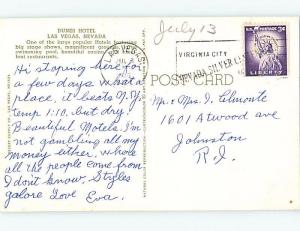 DUNES HOTEL
LAS VEGAS, NEVADA
One of the large popular Hotels featuring
big stage shows, magnificent
swimming pool, and beautiful
Hi stoping here for a
few days what a
place, it beats N.Y.
Temp 110. but dry.
Beautiful Motels. I'm
not gambling all my
money either, where
all the people come from
I don't know. Styles
galore Love Eva.
July 13
VIRGINIA CITY
NEVADA SILVER
3¢
LIBERTY
POST CARD
Mr. & Mrs. J. Elmonte
1601 Atwood ave
Johnston
R.I.